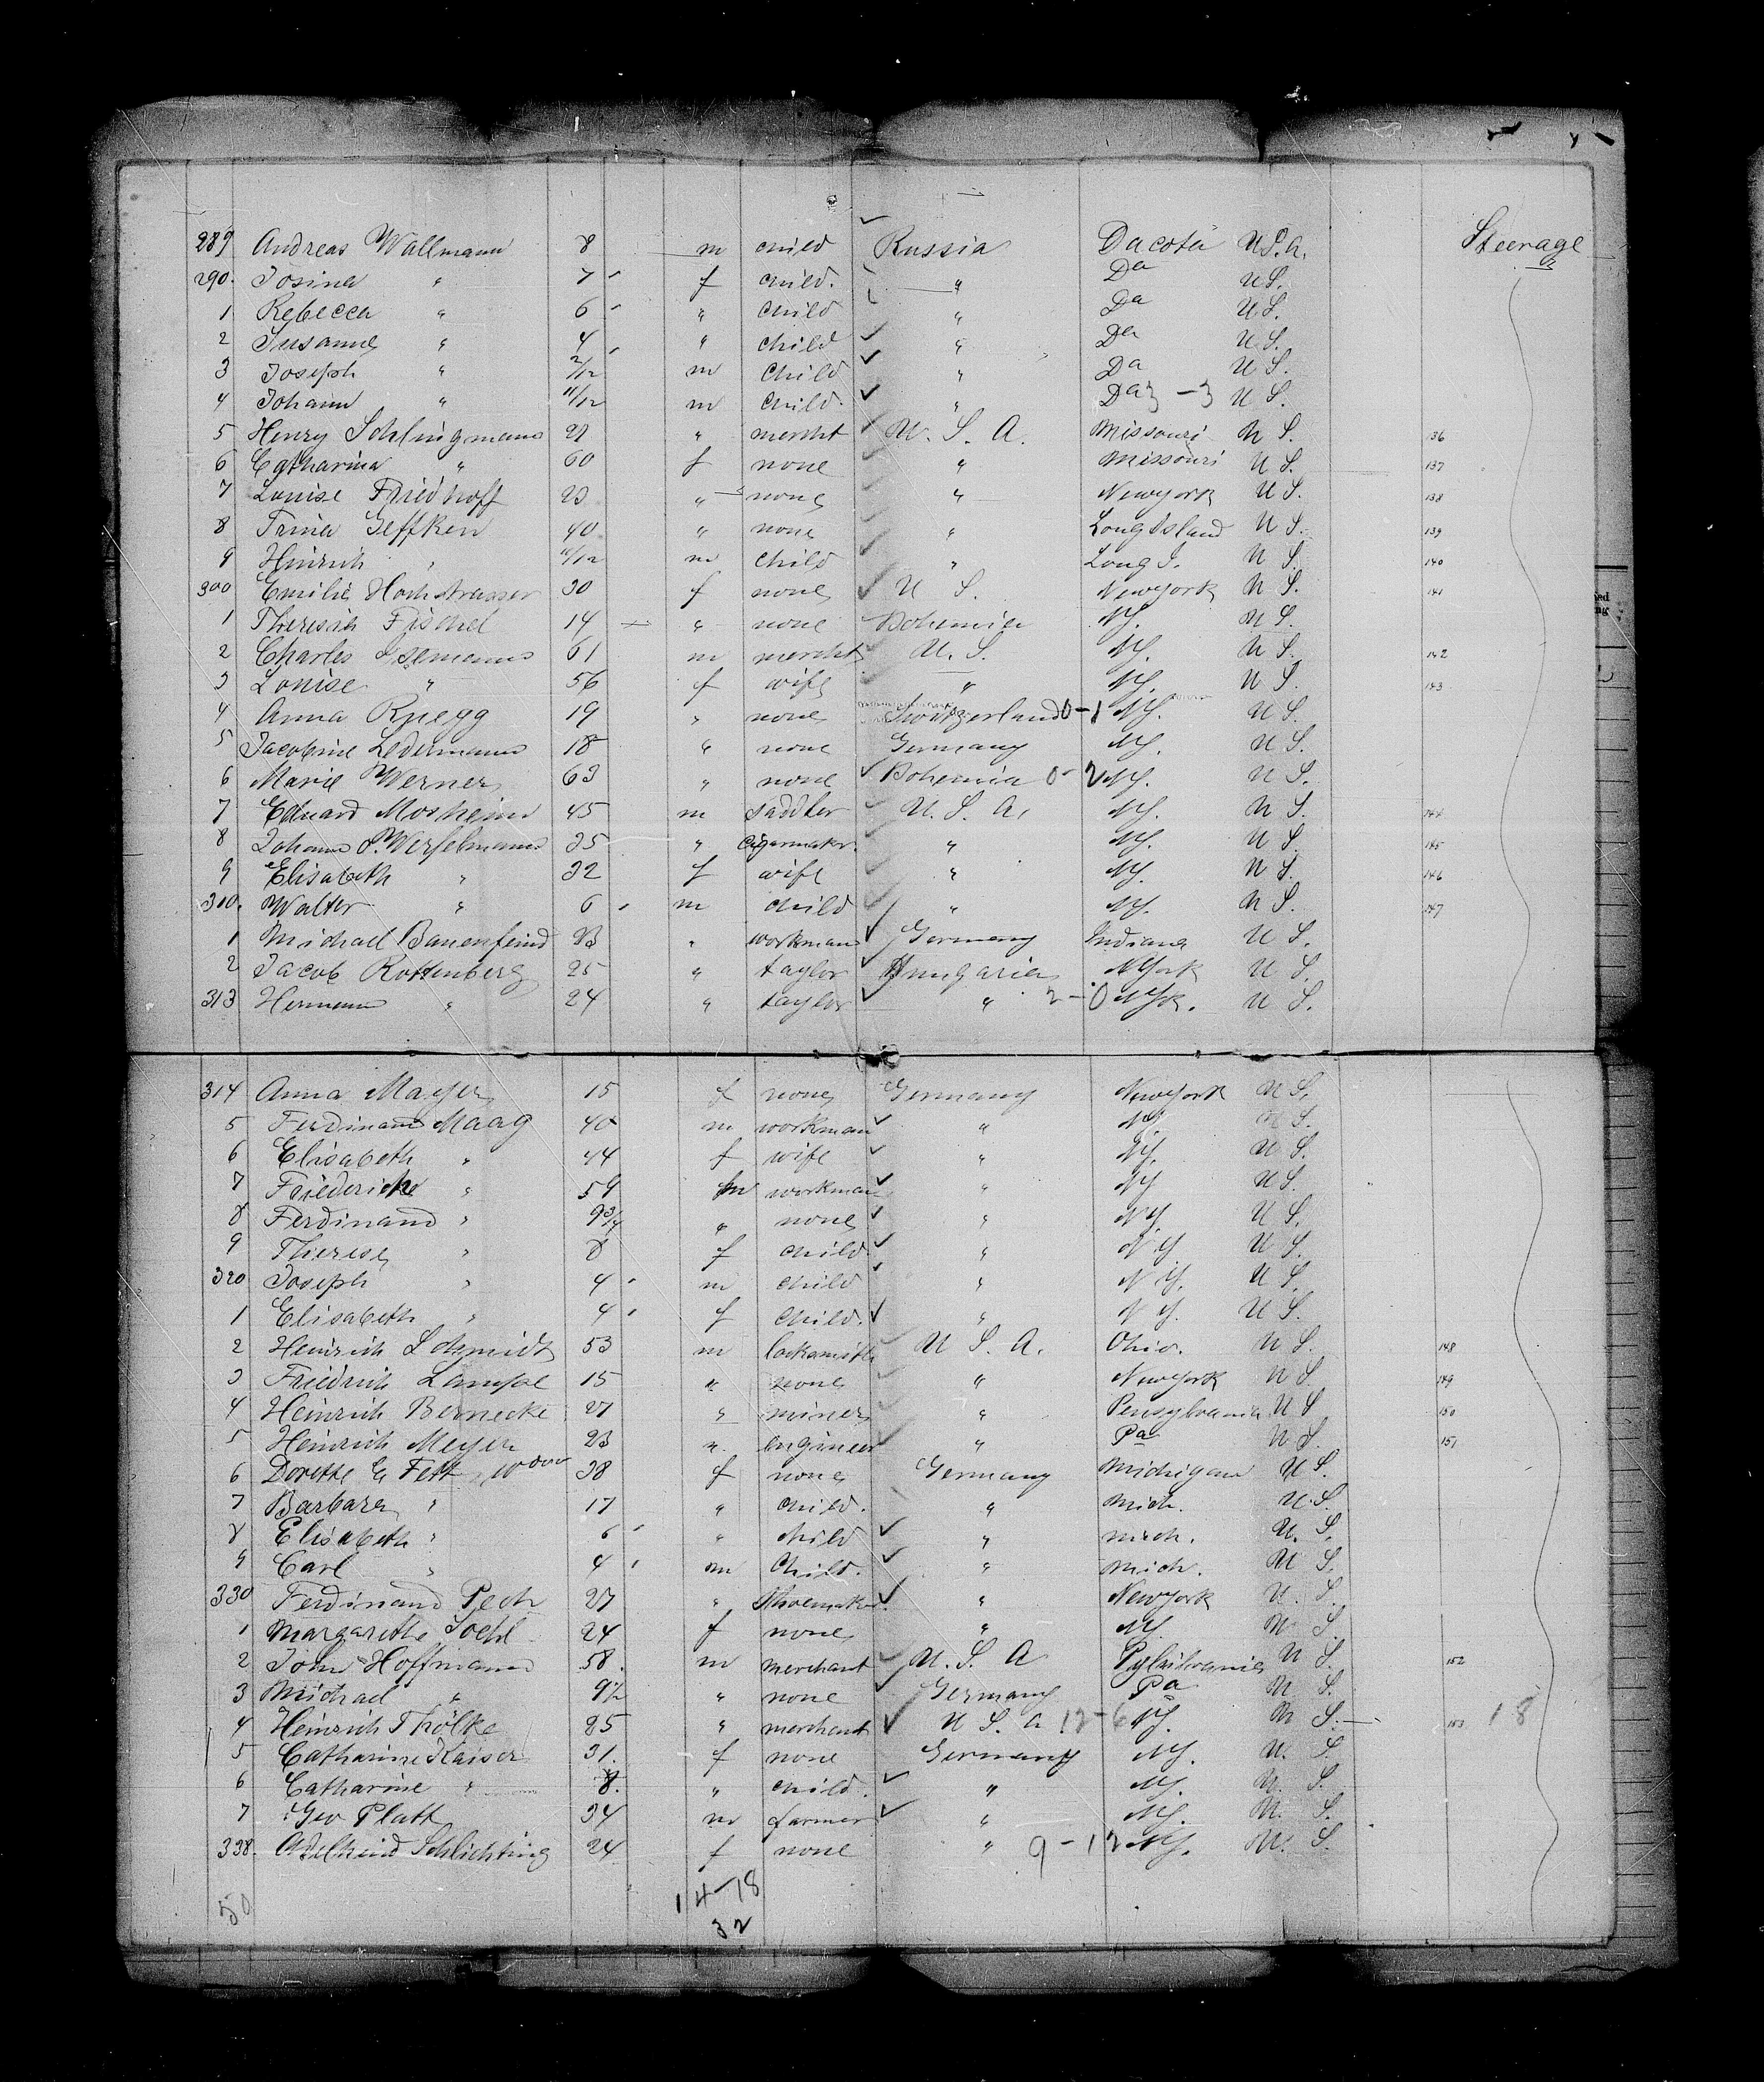 Steerage
289 Andreas Wallmann 8 m child Russia Dacota U.S.A.
290. Josina " 7 f child. " Da U S.
1 Rebecca " 6 " child " Da U S.
2 Susanne " 4 " child " Da U S.
3 Joseph " 2/12 m child " Da U S.
4 Johann " 11/12 m child. " Da 3-3 U S.
5 Henry Schlingmann 27 " mercht U. S. A. Missouri U S. 136
6 Catharina " 60 f none " Missouri U S. 137
7 Louise Friedhoff 23 " none " Newyork U S. 138
8 Trina Geffken 40 " none " Long Island U S. 139
9 Heinrich " 11/12 m child " Long I. U S. 140
300 Emilie Hochstrasser 30 f none U S. Newyork U S. 141
1 Theresia Fischel 14 " none Bohemia NY. U S.
2 Charles Isemann 61 m mercht U. S. NY. U S. 142
3 Louise " 56 f wife " NY. U S. 143
4 Anna Ruegg 19 " none Switzerland 0-1 NY. U S.
5 Jacobine Ledermann 18 " none Germany NY. U S.
6 Marie Werner 63 " none Bohemia 0-2 NY. U S.
7 Eduard Mosheim 45 m saddler U. S. A. NY. U S. 144
8 Johann P. Werselmann 35 " cigarmakr. " NY. U S. 145
9 Elisabeth " 32 f wife " NY. U S. 146
310. Walter " 6 m child " NY. U S. 147
1 Michael Bauenfeind 23 " workman Germany Indiana U S.
2 Jacob Rottenberg 25 " taylor Hungaria NYork U S.
313 Hermann " 24 " taylor " 2-0 NYk. U S.
314 Anna Mayer 15 f none Germany Newyork U S.
5 Ferdinand Maag 40 m workman " NY. U S.
6 Elisabeth " 44 f wife " NY. U S.
7 Friederich " 59 m workman " NY U S.
8 Ferdinand " 9 3/4 " none " NY. U S.
9 Therese " 8 f child. " NY. U S.
320 Joseph " 4 m child " N Y. U S.
1 Elisabeth " 4 f child. " N Y. U S.
2 Heinrich Schmidt 53 m locksmith U S. A. Ohio. U S. 148
3 Friedrich Lampe 15 " none " Newyork U S. 149
4 Heinrich Bernecke 27 " miner " Pensylvania U S 150
5 Heinrich Meyer 23 " engineer " Pa U S. 151
6 Dorette E Fett 38 f none Germany Michigan U S.
7 Barbara " 17 " child. " Mich. U.S.
8 Elisabeth " 6 " child " mich. U. S.
9 Carl " 4 m child. " mich. U S.
330 Ferdinand Pech 27 " Shoemaker. " Newyork U. S.
1 Margarethe Soehl 24 f none " NY. U S.
2 John Hoffmann 58. m merchant U. S. A Pylsilvania U S. 152
3 Michael " 9 1/2 " none Germany Pa U S.
4 Heinrich Thölke 25 " merchant U S. A 12-6 NY. U S. 153 18
5 Catharine Kaiser 31. f none Germany NY. U. S.
6 Catharine " 8. " child. " NY. U. S.
7 Geo Platt 34 m farmer " NY. U. S.
338. Adelheid Schlichting 24 f none " 9-12 NY. U. S.
50 14-18
32